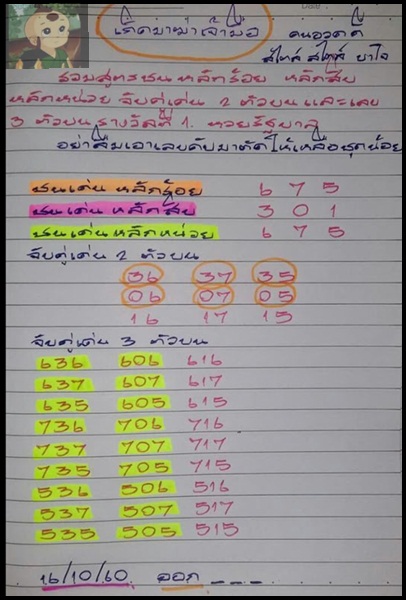 เกิดมาฆ่าเจ้ามือ คนอวดดี
สไตล์ สไตล์ ยาใจ
รวมสูตรชน หลักร้อย หลักสิบ
หลักหน่วย จับคู่เด่น 2 ตัวบน และเลข
3 ตัวบน รางวัลที่ 1. หวยรัฐบาล
อย่าลืมเอาเลขดับมาตัดให้เหลือชุดน้อย
ชนเด่น หลักร้อย 6 7 5
ชนเด่น หลักสิบ 3 0 1
ชนเด่น หลักหน่วย 6 7 5
จับคู่เด่น 2 ตัวบน
36 37 35
06 07 05
16 17 15
จับคู่เด่น 3 ตัวบน
636 606 616
637 607 617
635 605 615
736 706 716
737 707 717
735 705 715
536 506 516
537 507 517
535 505 515
16/10/60 ออก - - -